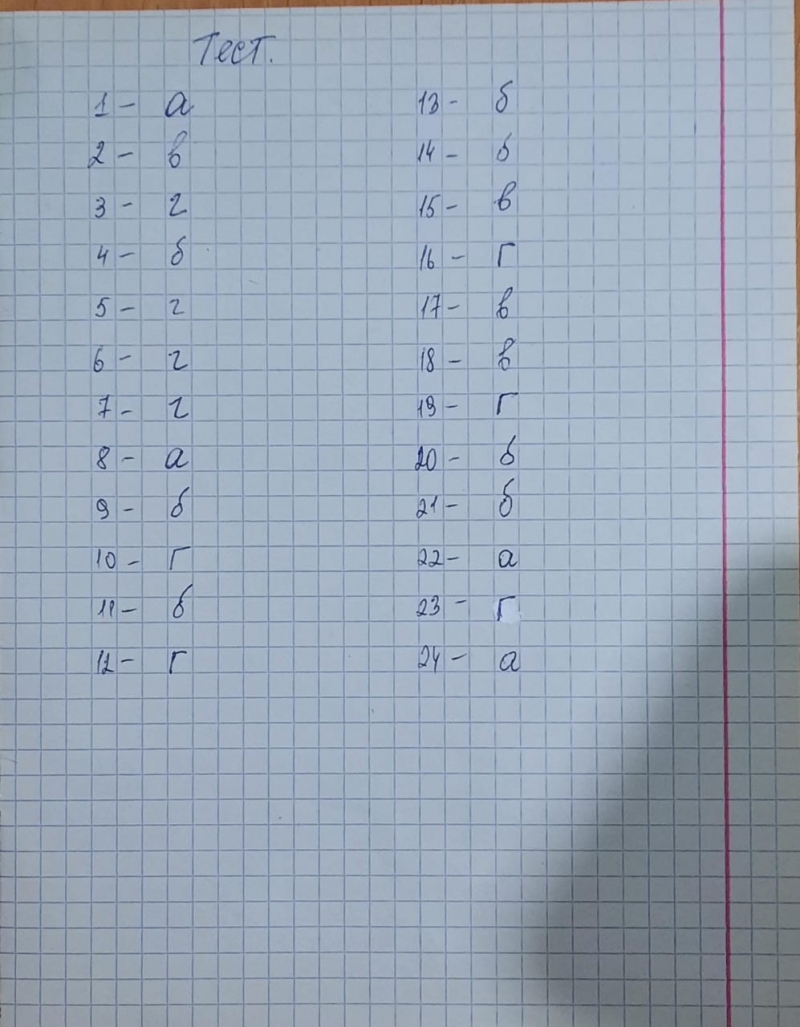 Тест.
1 - а
2 - в
3 - г
4 - б
5 - г
6 - г
7 - г
8 - а
9 - б
10 - г
11 - б
12 - г
13 - б
14 - б
15 - в
16 - г
17 - в
18 - в
19 - г
20 - б
21 - б
22 - а
23 - г
24 - а